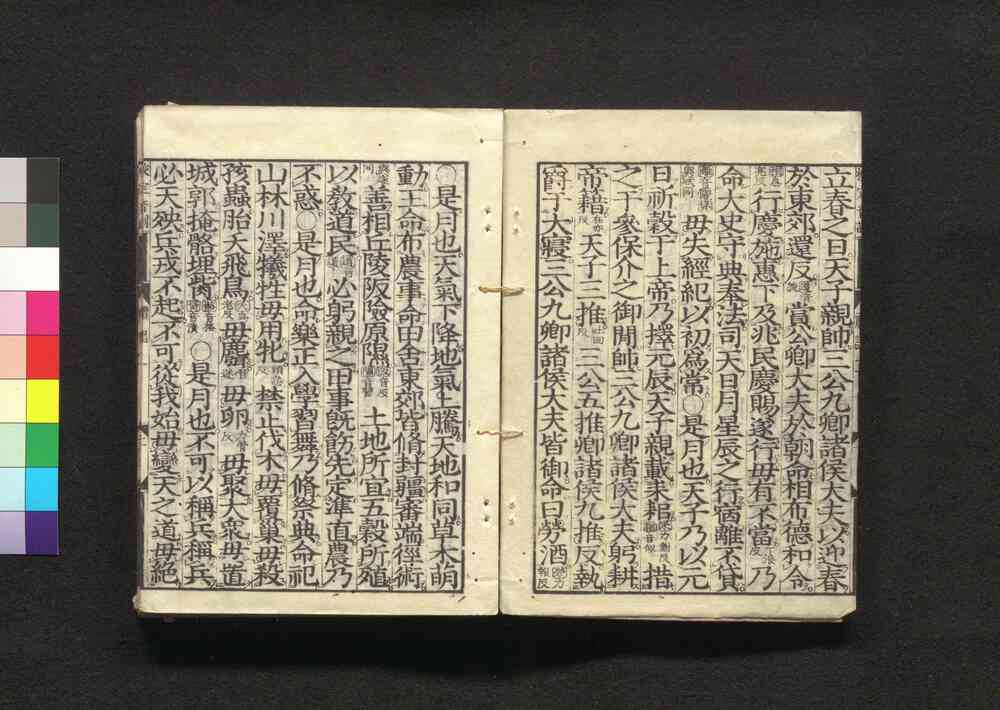 立春之日天子親帥三公九卿諸侯大夫以迎春
於東郊還反賞公卿大夫於朝命相布德和令
行慶施惠下及兆民慶賜遂行毋有不當乃
命大史守典奉法司天日月星辰之行宿離不貸
毋失經紀以初為常○是月也天子乃以元
日祈穀于上帝乃擇元辰天子親載耒耜措
之于參保介之御閒帥三公九卿諸侯大夫躬耕
帝藉天子三推三公五推卿諸侯九推反執
爵于大寢三公九卿諸侯大夫皆御命曰勞酒
○是月也天氣下降地氣上騰天地和同草木萌
動王命布農事命田舍東郊皆脩封疆審端徑術
善相丘陵阪險原隰土地所宜五穀所殖
以教道民必躬親之田事既飭先定準直農乃
不惑○是月也命樂正入學習舞乃脩祭典命祀
山林川澤犧牲毋用牝禁止伐木毋覆巢毋殺
孩蟲胎夭飛鳥毋麛毋卵毋聚大衆毋置
城郭掩骼埋胔○是月也不可以稱兵稱兵
必天殃兵戎不起不可從我始毋變天之道毋絕